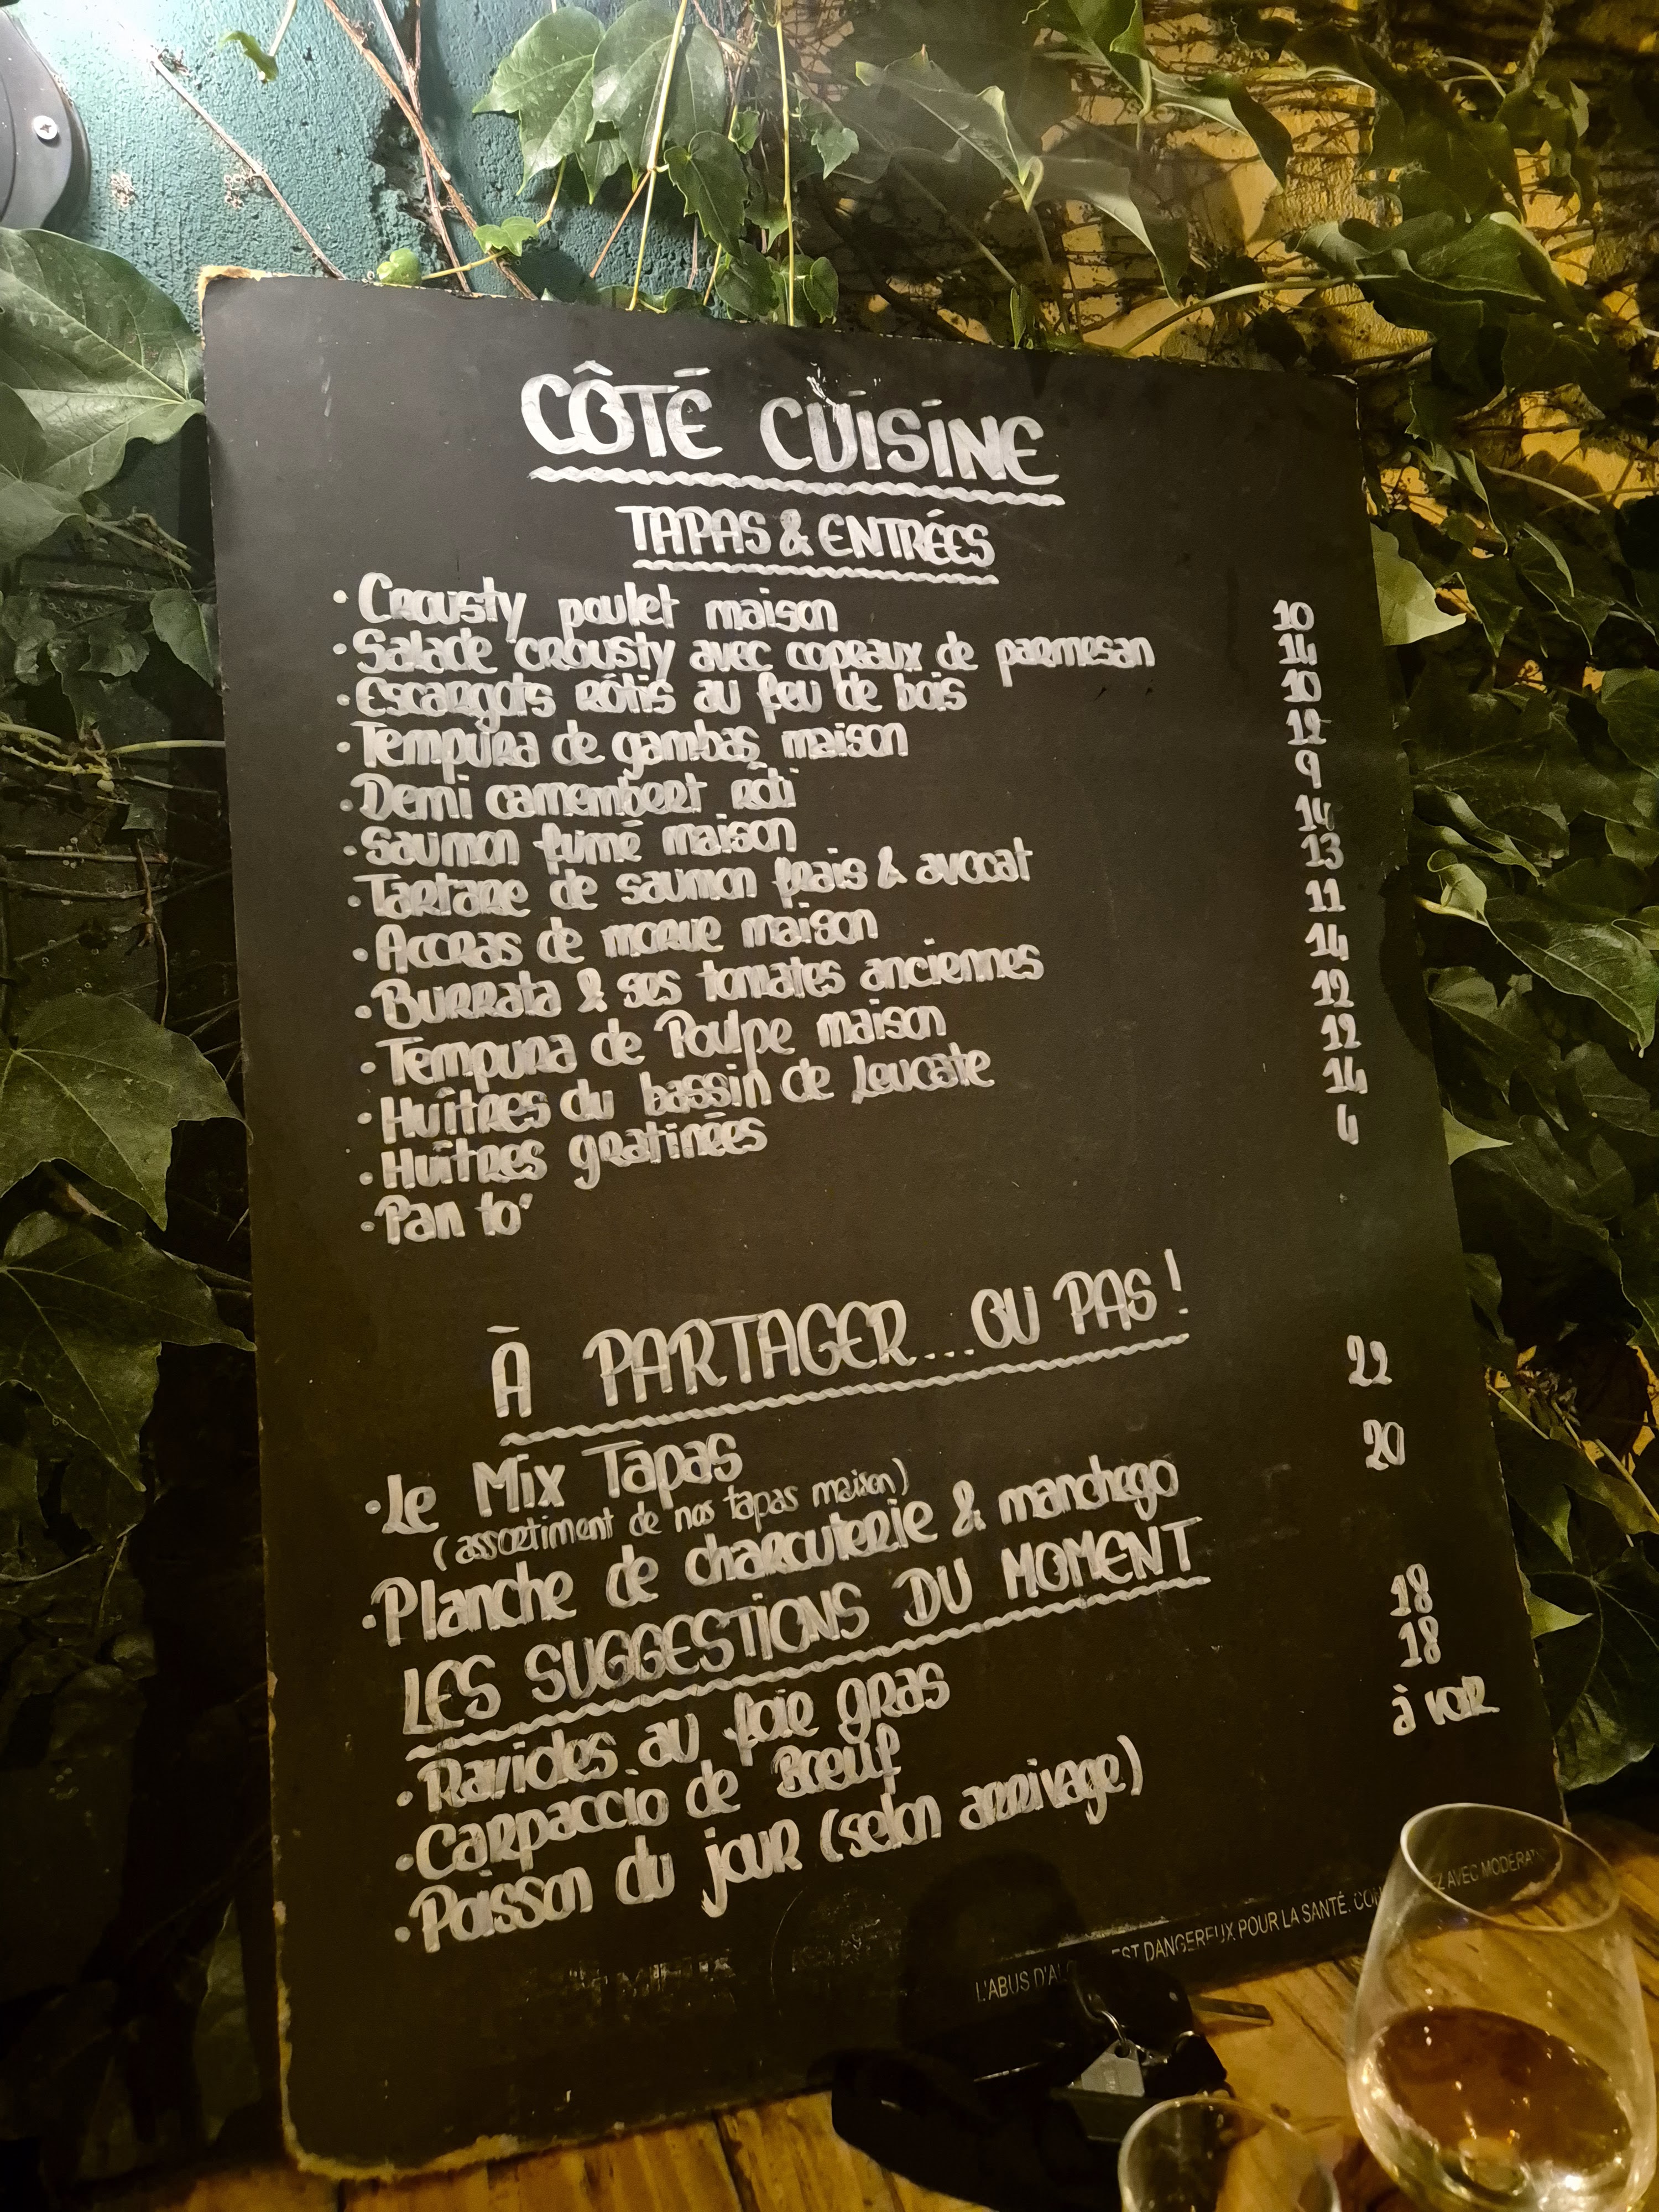 CÔTÉ CUISINE
TAPAS & ENTRÉES
• Crousty poulet maison 10
• Salade crousty avec copeaux de parmesan 14
• Escargots rôtis au feu de bois 10
• Tempura de gambas maison 12
• Demi camembert roti 9
• Saumon fumé maison 14
• Tartare de saumon frais & avocat 13
• Accras de morue maison 11
• Burrata & ses tomates anciennes 14
• Tempura de Poulpe maison 12
• Huîtres du bassin de Leucate 12
• Huîtres gratinées 14
• Pan to' 4
À PARTAGER...OU PAS !
• Le Mix Tapas 22
(assortiment de nos tapas maison)
• Planche de charcuterie & manchego 20
LES SUGGESTIONS DU MOMENT
• Ravioles au foie gras 18
• Carpaccio de Boeuf 18
• Poisson du jour (selon arrivage) à voir
L'ABUS D'AL EST DANGEREUX POUR LA SANTÉ. CON EZ AVEC MODÉRAT